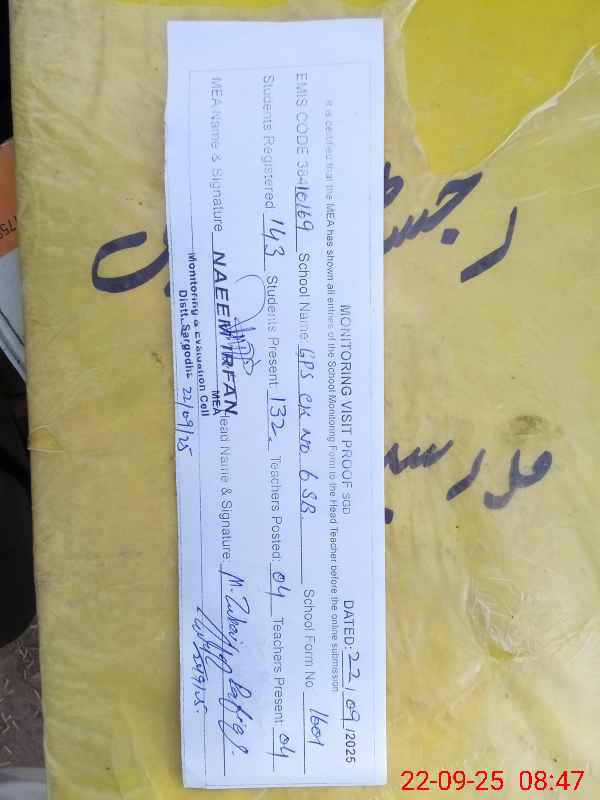 MONITORING VISIT PROOF SGD DATED: 22/09/2025
It is certified that the MEA has shown all entries of the School Monitoring Form to the Head Teacher before the online submission
EMIS CODE 38410169 School Name GPS CK NO 6 SB. School Form No 1601
Students Registered 143 Students Present: 132 Teachers Posted: 04 Teachers Present: 04
MEA Name & Signature NAEEM IRFAN Head Name & Signature:
MEA
Monitoring & Evaluation Cell
Distt. Sargodha 22/09/25
رجسٹر
مدرسین
22-09-25 08:47